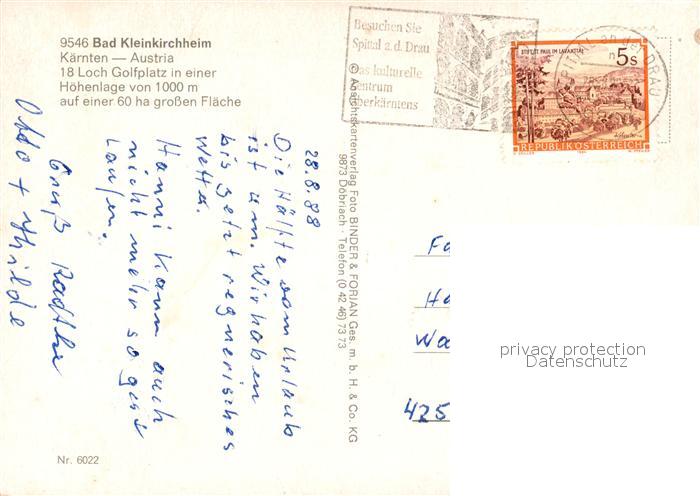 9546 Bad Kleinkirchheim
Kärnten — Austria
18 Loch Golfplatz in einer
Höhenlage von 1000 m
auf einer 60 ha großen Fläche
Besuchen Sie
Spittal a.d. Drau
Das kulturelle
Zentrum
Oberkärntens
STIFT ST. PAUL IM LAVANTTAL
5s
REPUBLIK ÖSTERREICH
DRAU
28.8.88
Die Hälfte vom Urlaub
ist um. Wir haben
bis jetzt regnerisches
Wetter.
Hanni kann auch
nicht mehr so gut
laufen.
Gruß
Otto + Hilde
© Ansichtskartenverlag Foto BINDER & FORIAN Ges. m. b. H. & Co. KG
9873 Döbriach · Telefon (0 42 46) 73 73
Fa
Ha
Wa
425
privacy protection
Datenschutz
Nr. 6022